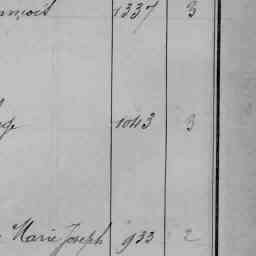 ançois 1337 3
1043 3
Marie Joseph 933 2